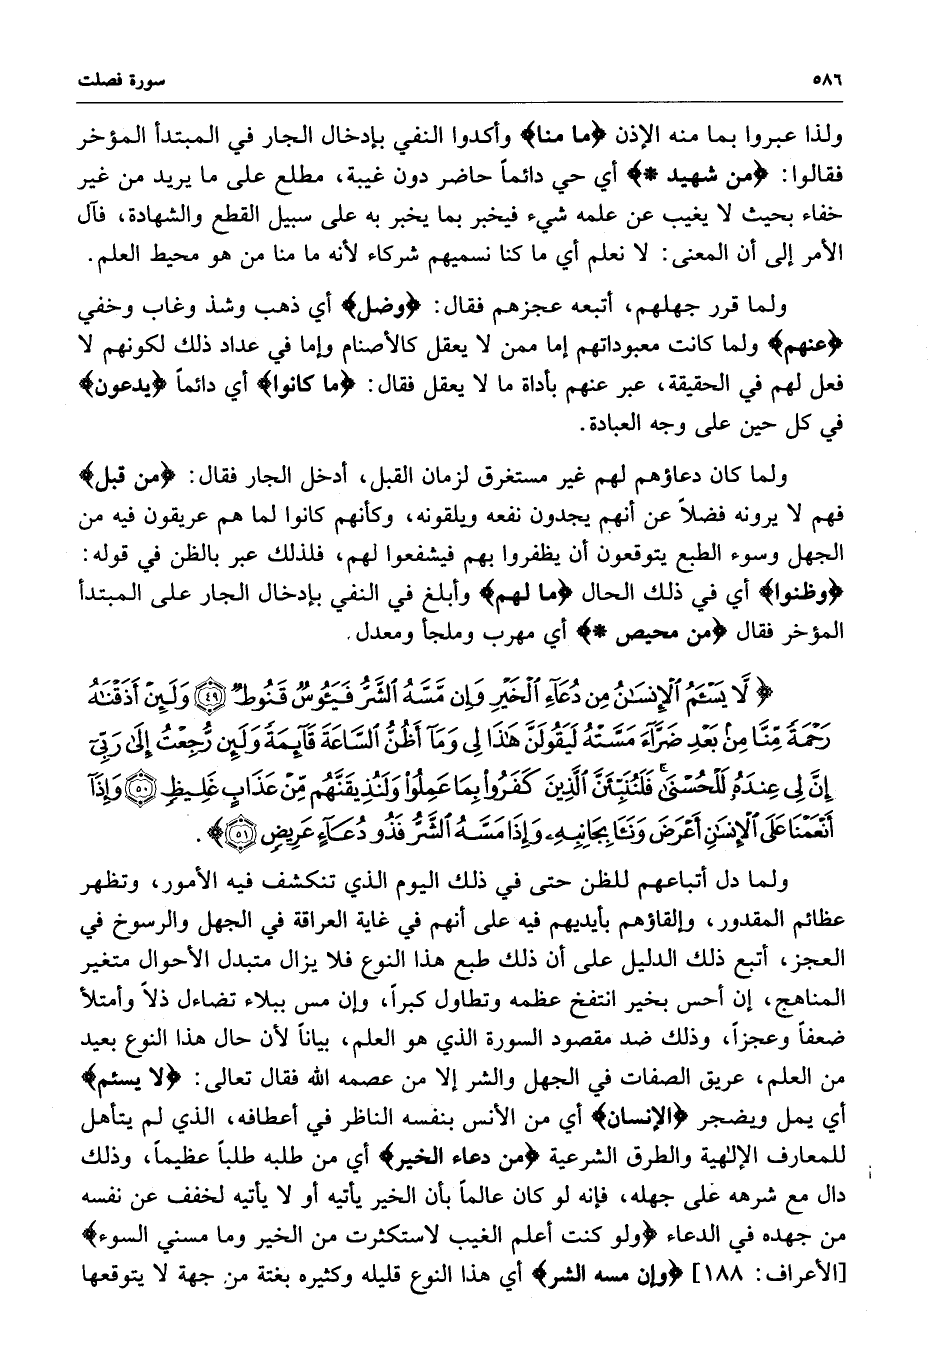 ٥٨٦ سورة فصلت
ولذا عبروا بما منه الإذن ﴿ما منا﴾ وأكدوا النفي بإدخال الجار في المبتدأ المؤخر
فقالوا: ﴿من شهيد *﴾ أي حي دائماً حاضر دون غيبة، مطلع على ما يريد من غير
خفاء بحيث لا يغيب عن علمه شيء فيخبر بما يخبر به على سبيل القطع والشهادة، فآل
الأمر إلى أن المعنى: لا نعلم أي ما كنا نسميهم شركاء لأنه ما منا من هو محيط العلم.
ولما قرر جهلهم، أتبعه عجزهم فقال: ﴿وضل﴾ أي ذهب وشذ وغاب وخفي
﴿عنهم﴾ ولما كانت معبوداتهم إما ممن لا يعقل كالأصنام وإما في عداد ذلك لكونهم لا
فعل لهم في الحقيقة، عبر عنهم بأداة ما لا يعقل فقال: ﴿ما كانوا﴾ أي دائماً ﴿يدعون﴾
في كل حين على وجه العبادة.
ولما كان دعاؤهم لهم غير مستغرق لزمان القبل، أدخل الجار فقال: ﴿من قبل﴾
فهم لا يرونه فضلاً عن أنهم يجدون نفعه ويلقونه، وكأنهم كانوا لما هم عريقون فيه من
الجهل وسوء الطبع يتوقعون أن يظفروا بهم فيشفعوا لهم، فلذلك عبر بالظن في قوله:
﴿وظنوا﴾ أي في ذلك الحال ﴿ما لهم﴾ وأبلغ في النفي بإدخال الجار على المبتدأ
المؤخر فقال ﴿من محيص *﴾ أي مهرب وملجأ ومعدل.
﴿لَّا يَسْـَٔمُ ٱلْإِنسَـٰنُ مِن دُعَآءِ ٱلْخَيْرِ وَإِن مَّسَّهُ ٱلشَّرُّ فَيَـُٔوسٌ قَنُوطٌ ﴿٤٩﴾ وَلَئِنْ أَذَقْنَـٰهُ
رَحْمَةً مِّنَّا مِنۢ بَعْدِ ضَرَّآءَ مَسَّتْهُ لَيَقُولَنَّ هَـٰذَا لِى وَمَآ أَظُنُّ ٱلسَّاعَةَ قَآئِمَةً وَلَئِن رُّجِعْتُ إِلَىٰ رَبِّىٓ
إِنَّ لِى عِندَهُۥ لَلْحُسْنَىٰ ۚ فَلَنُنَبِّئَنَّ ٱلَّذِينَ كَفَرُوا۟ بِمَا عَمِلُوا۟ وَلَنُذِيقَنَّهُم مِّنْ عَذَابٍ غَلِيظٍ ﴿٥٠﴾ وَإِذَآ
أَنْعَمْنَا عَلَى ٱلْإِنسَـٰنِ أَعْرَضَ وَنَـَٔا بِجَانِبِهِۦ وَإِذَا مَسَّهُ ٱلشَّرُّ فَذُو دُعَآءٍ عَرِيضٍ ﴿٥١﴾﴾.
ولما دل أتباعهم للظن حتى في ذلك اليوم الذي تنكشف فيه الأمور، وتظهر
عظائم المقدور، وإلقاؤهم بأيديهم فيه على أنهم في غاية العراقة في الجهل والرسوخ في
العجز، أتبع ذلك الدليل على أن ذلك طبع هذا النوع فلا يزال متبدل الأحوال متغير
المناهج، إن أحس بخير انتفخ عظمه وتطاول كبراً، وإن مس ببلاء تضاءل ذلاً وأمتلأ
ضعفاً وعجزاً، وذلك ضد مقصود السورة الذي هو العلم، بياناً لأن حال هذا النوع بعيد
من العلم، عريق الصفات في الجهل والشر إلا من عصمه الله فقال تعالى: ﴿لا يسئم﴾
أي يمل ويضجر ﴿الإنسان﴾ أي من الأنس بنفسه الناظر في أعطافه، الذي لم يتأهل
للمعارف الإلٰهية والطرق الشرعية ﴿من دعاء الخير﴾ أي من طلبه طلباً عظيماً، وذلك
دال مع شرهه على جهله، فإنه لو كان عالماً بأن الخير يأتيه أو لا يأتيه لخفف عن نفسه
من جهده في الدعاء ﴿ولو كنت أعلم الغيب لاستكثرت من الخير وما مسني السوء﴾
[الأعراف: ١٨٨] ﴿وإن مسه الشر﴾ أي هذا النوع قليله وكثيره بغتة من جهة لا يتوقعها